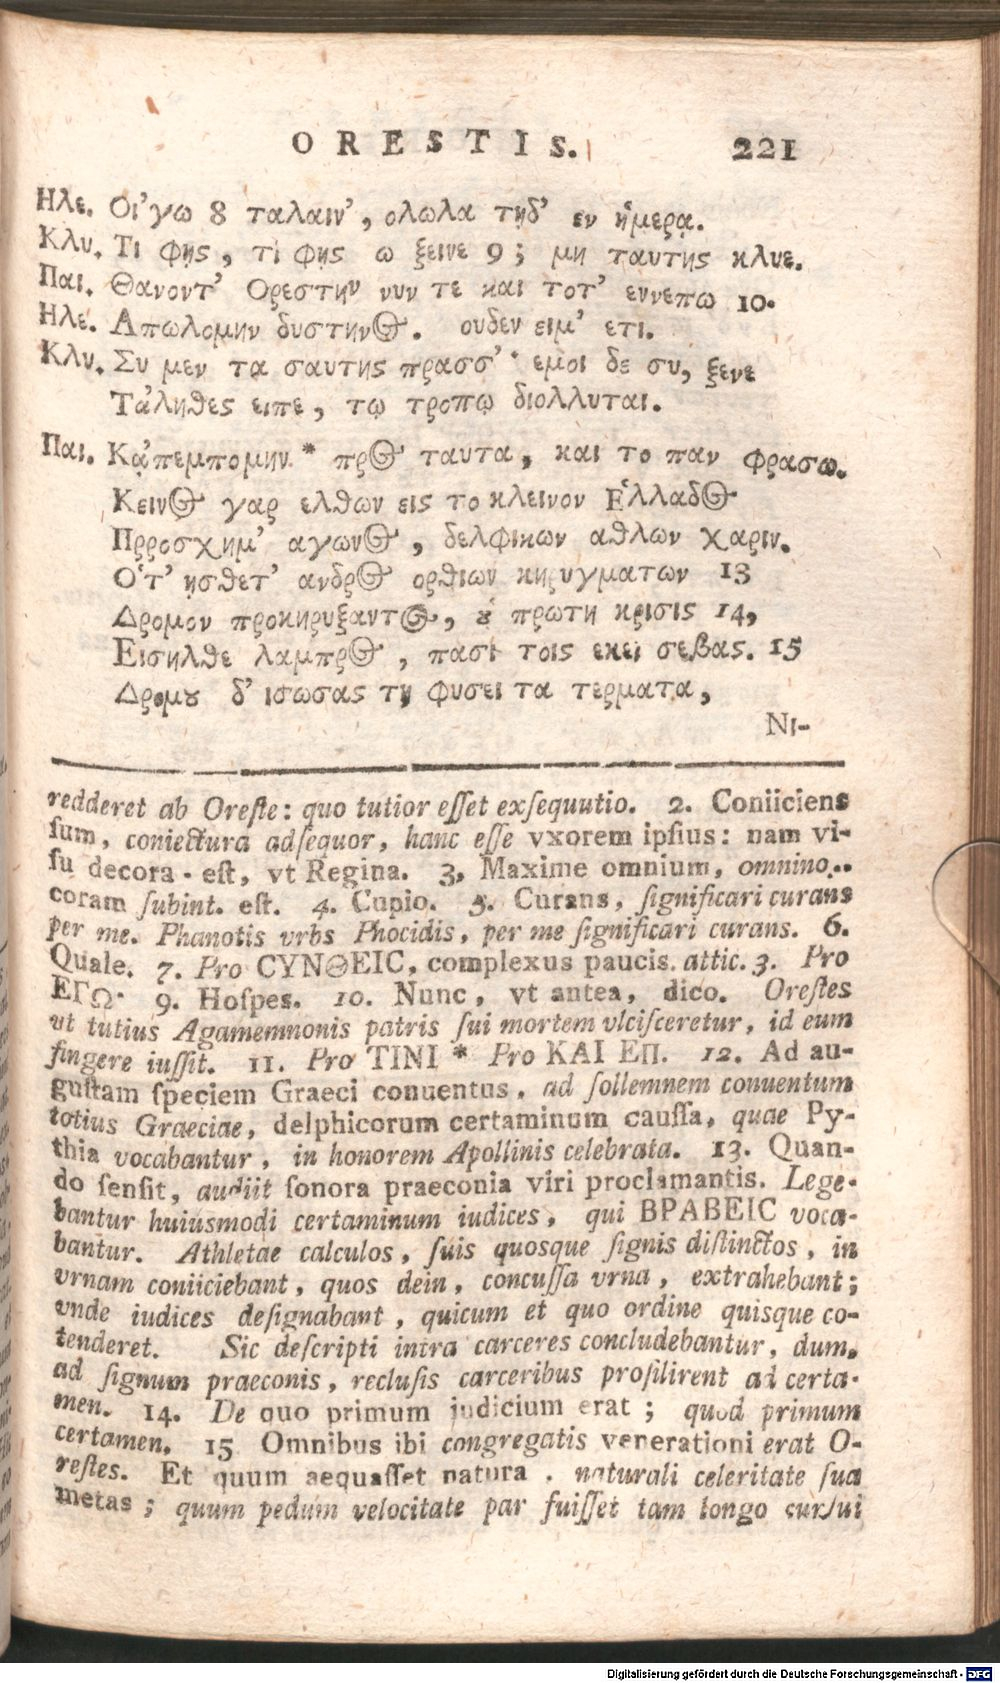 ORESTIS. 221
Ηλε. Οι’γω 8 ταλαιν’, ολωλα τῃδ’ εν ἡμερᾳ.
Κλυ. Τι φῃς, τι φῃς ω ξεινε 9; μη ταυτης κλυε.
Παι. Θανοντ’ Ορεστην νυν τε και τοτ’ εννεπω 10.
Ηλε. Απωλομην δυστηνος. ουδεν ειμ’ ετι.
Κλυ. Συ μεν τα σαυτης πρασσ’· εμοι δε συ, ξενε
Τἀληθες ειπε, τῳ τροπῳ διολλυται.
Παι. Κᾀπεμπομην * προς ταυτα, και το παν φρασω.
Κεινος γαρ ελθων εις το κλεινον Ἑλλαδος
Πρροσχημ’ αγωνος, δελφικων αθλων χαριν.
Ὁτ’ ησθετ’ ανδρος ορθιων κηρυγματων 13
Δρομον προκηρυξαντος, οὑ πρωτη κρισις 14,
Εισηλθε λαμπρος, πασι τοις εκει σεβας. 15
Δρομου δ’ ισωσας τῃ φυσει τα τερματα,
Νι-
redderet ab Oreſte: quo tutior eſſet exſequutio. 2. Coniiciens
ſum, coniectura adſequor, hanc eſſe vxorem ipſius: nam vi-
ſu decora · eſt, vt Regina. 3, Maxime omnium, omnino..
coram ſubint. eſt. 4. Cupio. 5. Curans, ſignificari curans
per me. Phanotis vrbs Phocidis, per me ſignificari curans. 6.
Quale. 7. Pro CΥΝΘΕΙC, complexus paucis. attic. 3. Pro
ΕΓΩ· 9. Hoſpes. 10. Nunc, vt antea, dico. Oreſtes
vt tutius Agamemnonis patris ſui mortem vlciſceretur, id eum
fingere iuſſit. 11. Pro ΤΙΝΙ * Pro ΚΑΙ ΕΠ. 12. Ad au-
guſtam ſpeciem Graeci conuentus, ad ſollemnem conuentum
totius Graeciae, delphicorum certaminum cauſſa, quae Py-
thia vocabantur, in honorem Apollinis celebrata. 13. Quan-
do ſenſit, audiit ſonora praeconia viri proclamantis. Lege-
bantur huiusmodi certaminum iudices, qui ΒΡΑΒΕΙC voca-
bantur. Athletae calculos, ſuis quosque ſignis diſtinctos, in
vrnam coniiciebant, quos dein, concuſſa vrna, extrahebant;
vnde iudices deſignabant, quicum et quo ordine quisque co-
tenderet. Sic deſcripti intra carceres concludebantur, dum,
ad ſignum praeconis, recluſis carceribus proſilirent ad certa-
men. 14. De quo primum judicium erat; quod primum
certamen. 15 Omnibus ibi congregatis venerationi erat O-
reſtes. Et quum aequaſſet natura, naturali celeritate ſua
metas; quum pedum velocitate par fuiſſet tam longo curſui
Digitalisierung gefördert durch die Deutsche Forschungsgemeinschaft - DFG